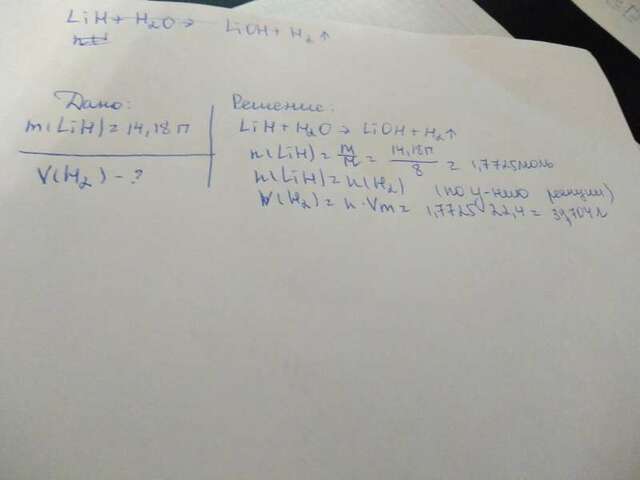 LiH + H₂O → LiOH + H₂↑
Дано:
m(LiH) = 14,18 г
V(H₂) - ?
Решение:
LiH + H₂O → LiOH + H₂↑
n(LiH) = m/M = 14,18г/8 = 1,7725моль
n(LiH) = n(H₂) (по ур-нию реакции)
V(H₂) = n · Vm = 1,7725 · 22,4 = 39,704л